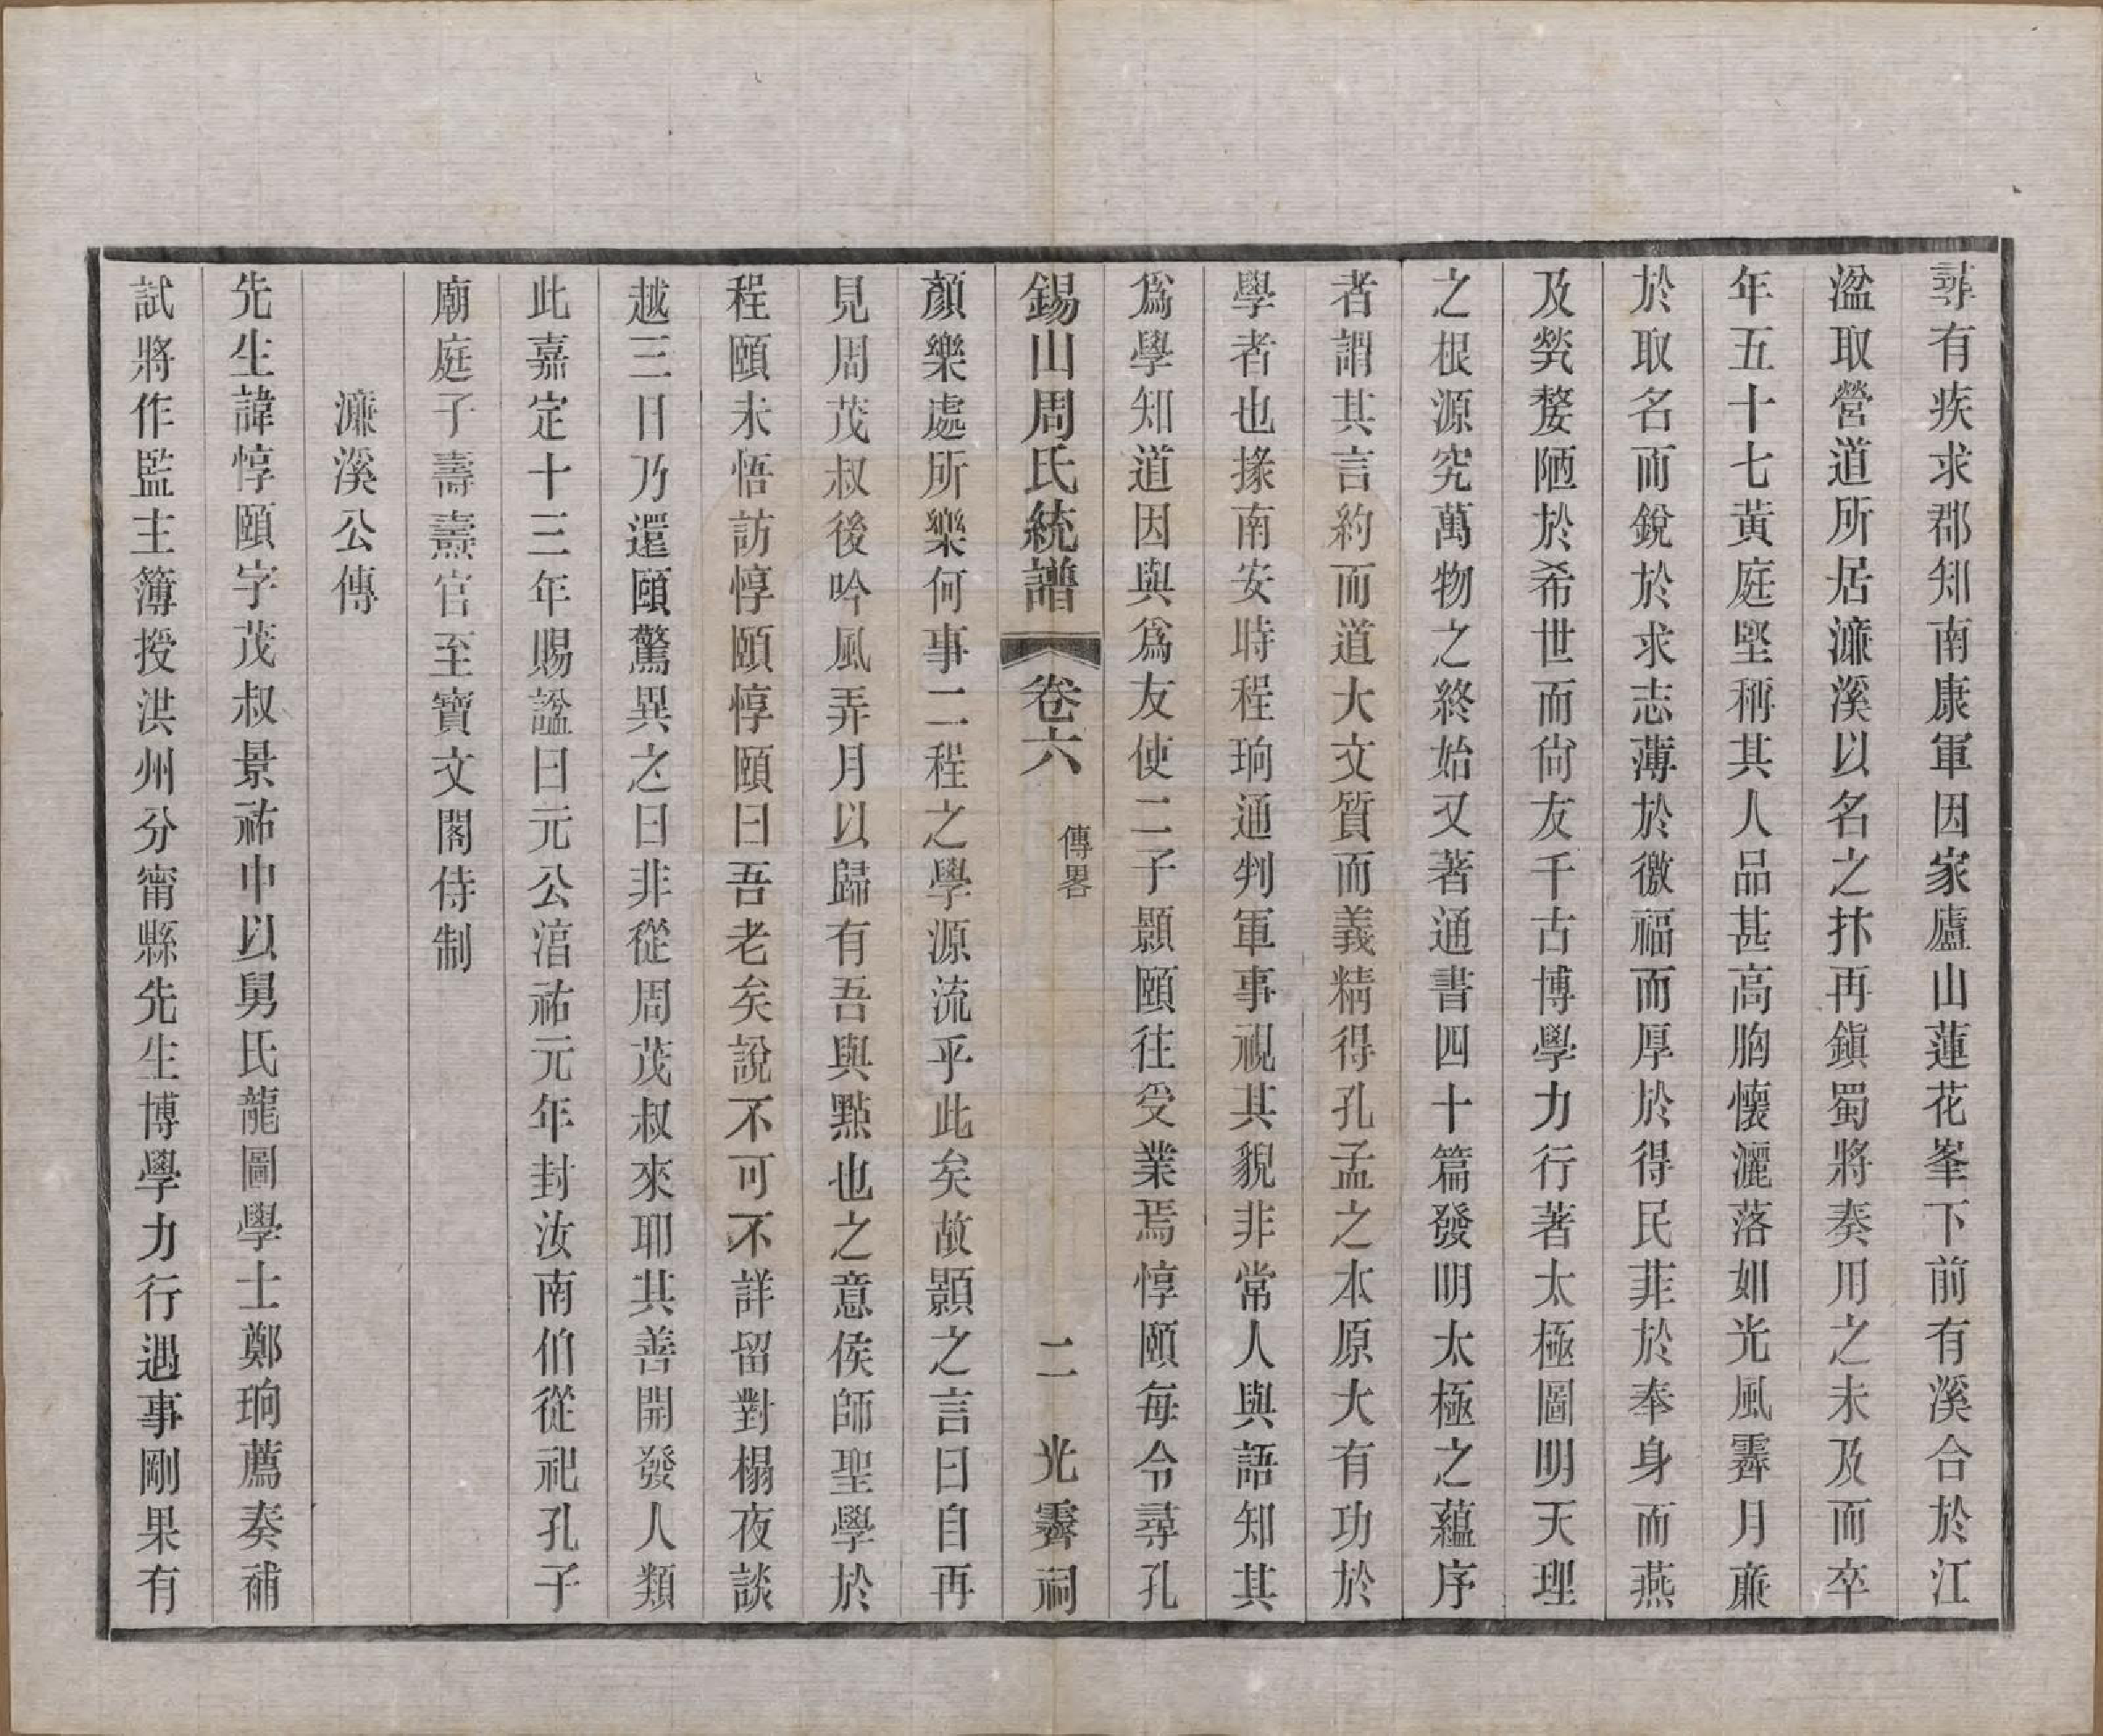 尋有疾求郡知南康軍因家廬山蓮花峯下前有溪合於江
湓取營道所居濂溪以名之抃再鎮蜀將奏用之未及而卒
年五十七黃庭堅稱其人品甚高胸懷灑落如光風霽月廉
於取名而銳於求志薄於徼福而厚於得民菲於奉身而燕
及焭嫠陋於希世而尙友千古博學力行著太極圖明天理
之根源究萬物之終始又著通書四十篇發明太極之蘊序
者謂其言約而道大文質而義精得孔孟之本原大有功於
學者也掾南安時程珦通判軍事視其貌非常人與語知其
爲學知道因與爲友使二子顥頤往受業焉惇頤每令尋孔
錫山周氏統譜 卷六 傳畧 二 光霽祠
顏樂處所樂何事二程之學源流乎此矣故顥之言曰自再
見周茂叔後吟風弄月以歸有吾與點也之意侯師聖學於
程頤未悟訪惇頤惇頤曰吾老矣說不可不詳留對榻夜談
越三日乃還頤驚異之曰非從周茂叔來耶其善開發人類
此嘉定十三年賜諡曰元公淯祐元年封汝南伯從祀孔子
廟庭子壽燾官至寶文閣侍制
濂溪公傳
先生諱惇頤字茂叔景祐中以舅氏龍圖學士鄭珦薦奏補
試將作監主簿授洪州分甯縣先生博學力行遇事剛果有